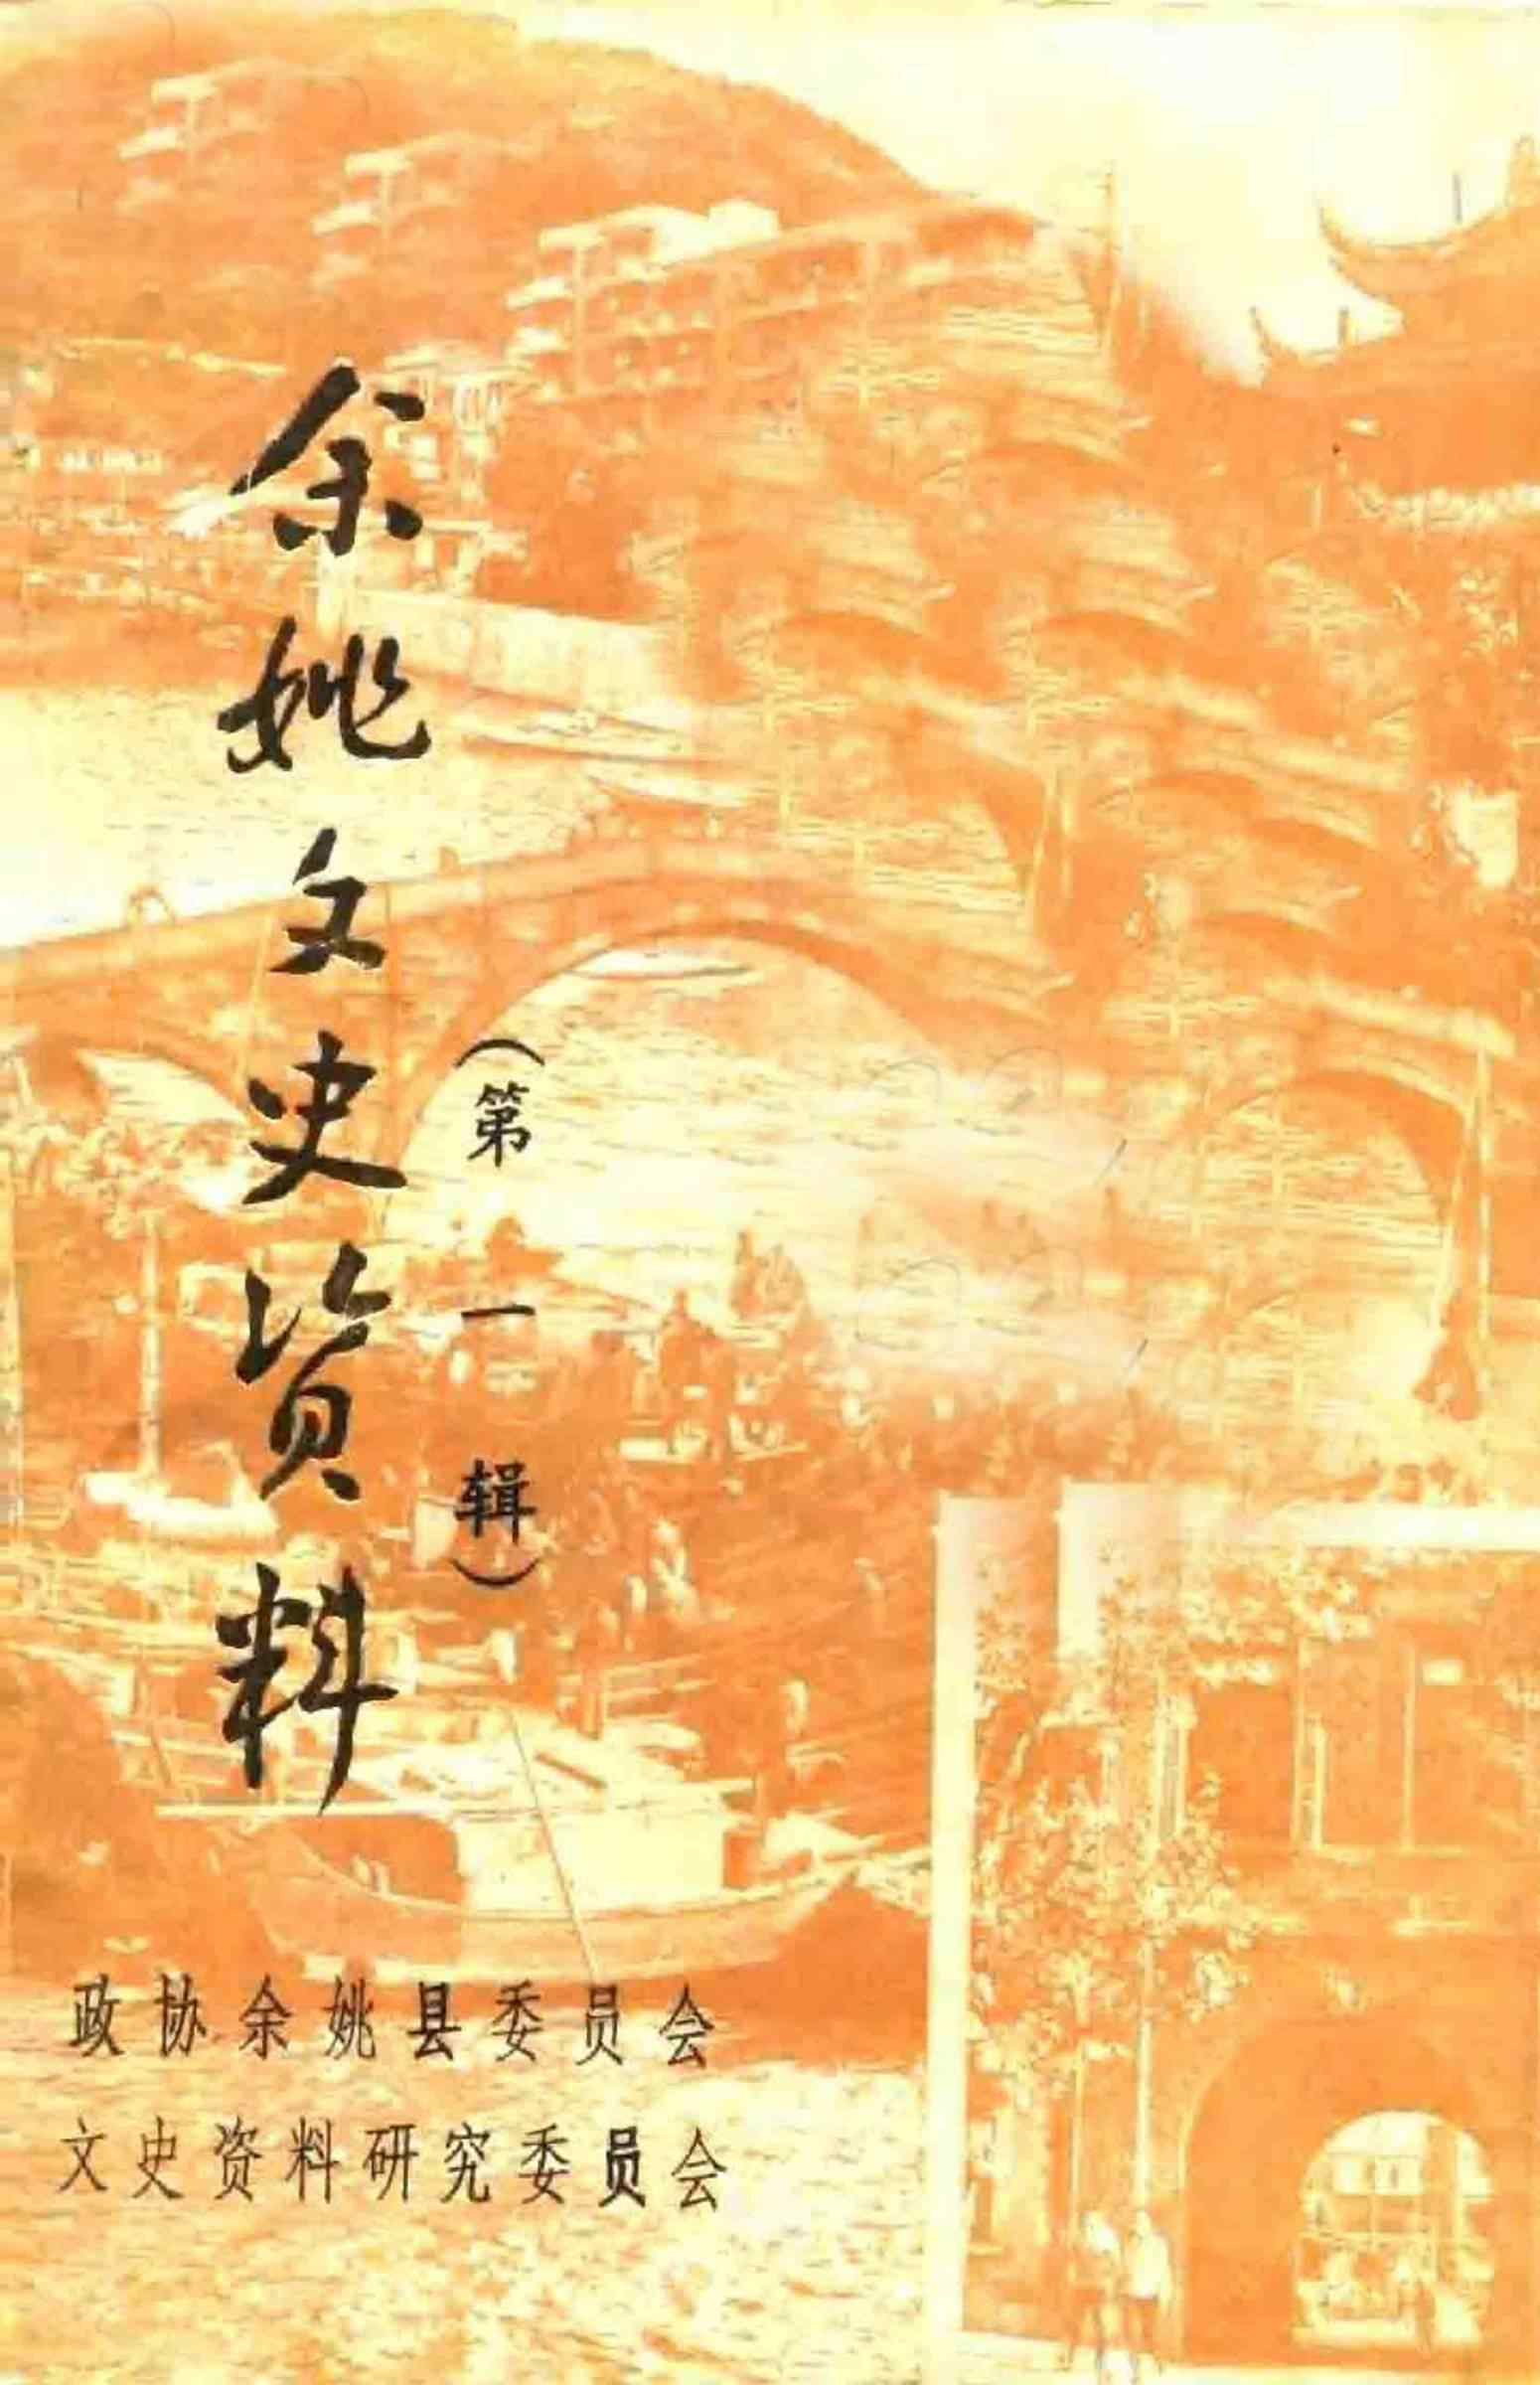 余姚文史资料
（第一辑）
政协余姚县委员会
文史资料研究委员会